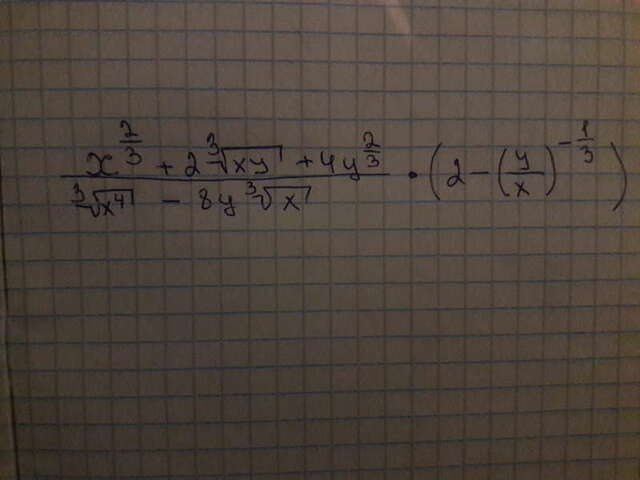 x^{\frac{2}{3}} + 2\sqrt[3]{xy} + 4y^{\frac{2}{3}} / \sqrt[3]{x^4} - 8y\sqrt[3]{x} \cdot \left(2 - \left(\frac{y}{x}\right)^{-\frac{1}{3}}\right)